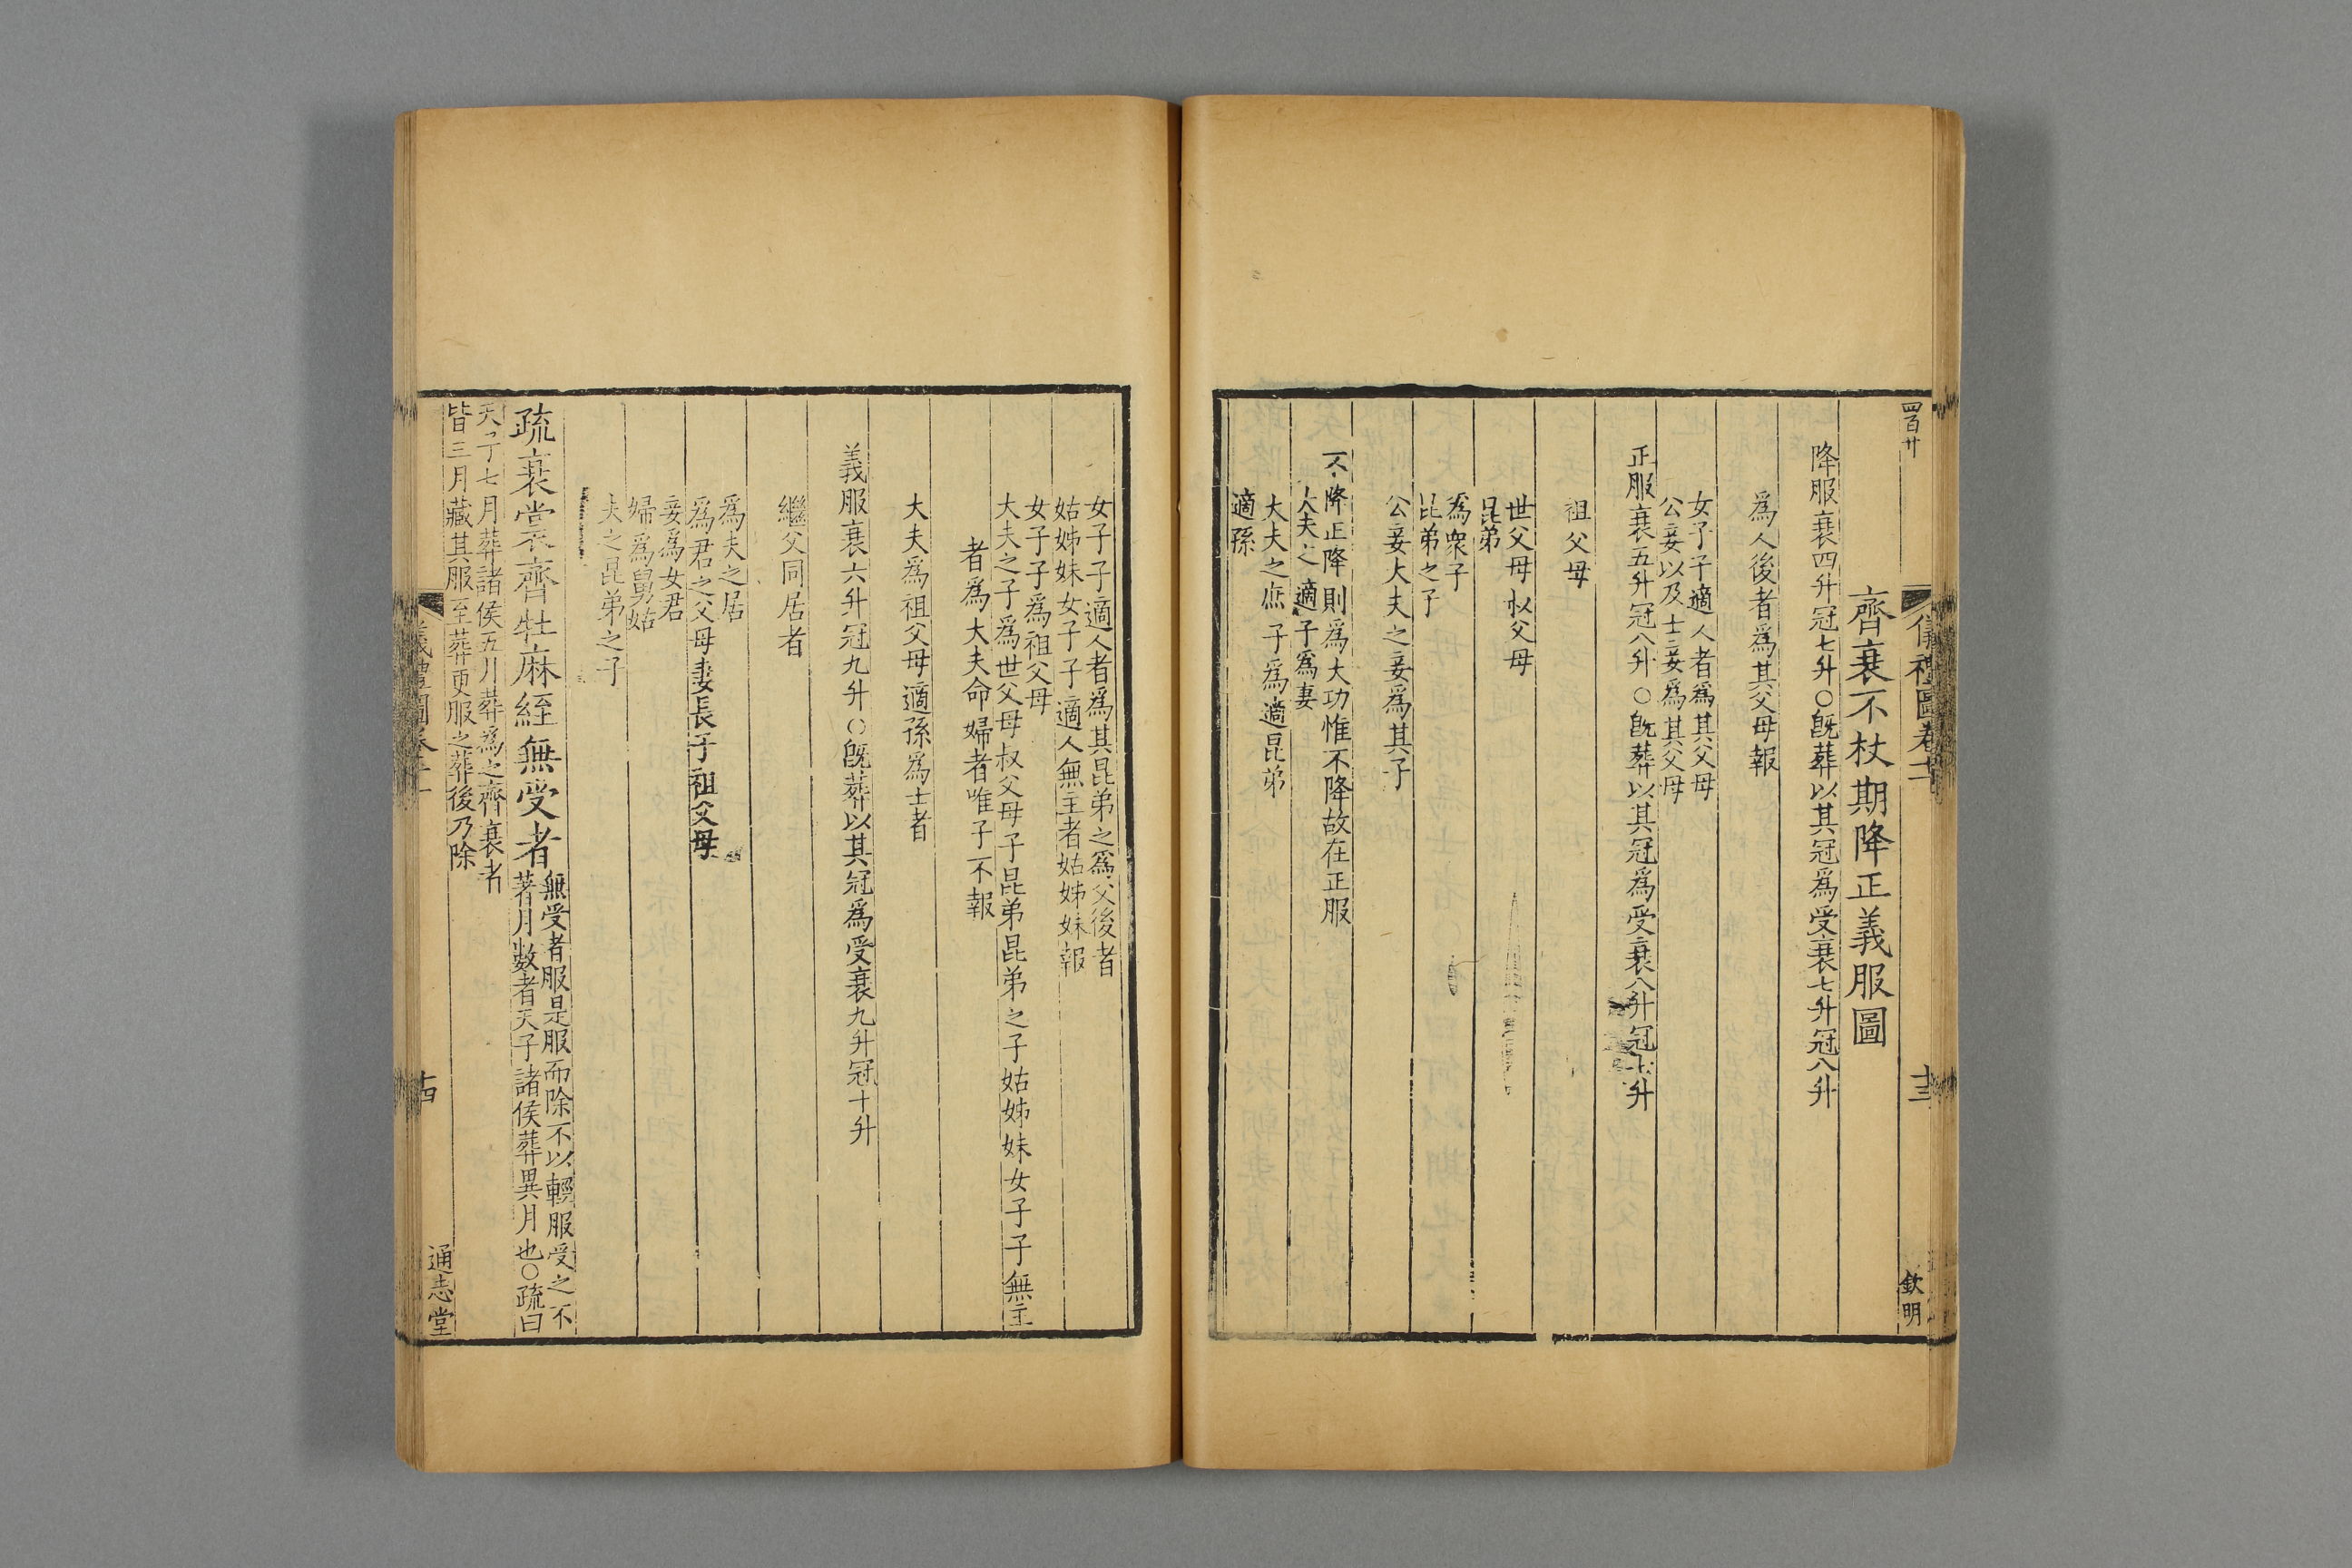 四百廿
儀禮圖卷十一
十三
欽明
齊衰不杖期降正義服圖
降服衰四升冠七升○旣葬以其冠爲受衰七升冠八升
爲人後者爲其父母報
女子子適人者爲其父母
公妾以及士妾爲其父母
正服衰五升冠八升○旣葬以其冠爲受衰八升冠九升
祖父母
世父母叔父母
昆弟
爲衆子
昆弟之子
公妾大夫之妾爲其子
不降正降則爲大功惟不降故在正服
大夫之適子爲妻
大夫之庶子爲適昆弟
適孫
女子子適人者爲其昆弟之爲父後者
姑姊妹女子子適人無主者姑姊妹報
女子子爲祖父母
大夫之子爲世父母叔父母子昆弟昆弟之子姑姊妹女子子無主
者爲大夫命婦者唯子不報
大夫爲祖父母適孫爲士者
義服衰六升冠九升○旣葬以其冠爲受衰九升冠十升
繼父同居者
爲夫之君
爲君之父母妻長子祖父母
妾爲女君
婦爲舅姑
夫之昆弟之子
疏衰裳齊牡麻絰無受者
無受者服是服而除不以輕服受之不
著月數者天子諸侯葬異月也○疏曰
天子七月葬諸侯五月葬爲之齊衰者
皆三月藏其服至葬更服之葬後乃除
儀禮圖卷十一
十四
通志堂